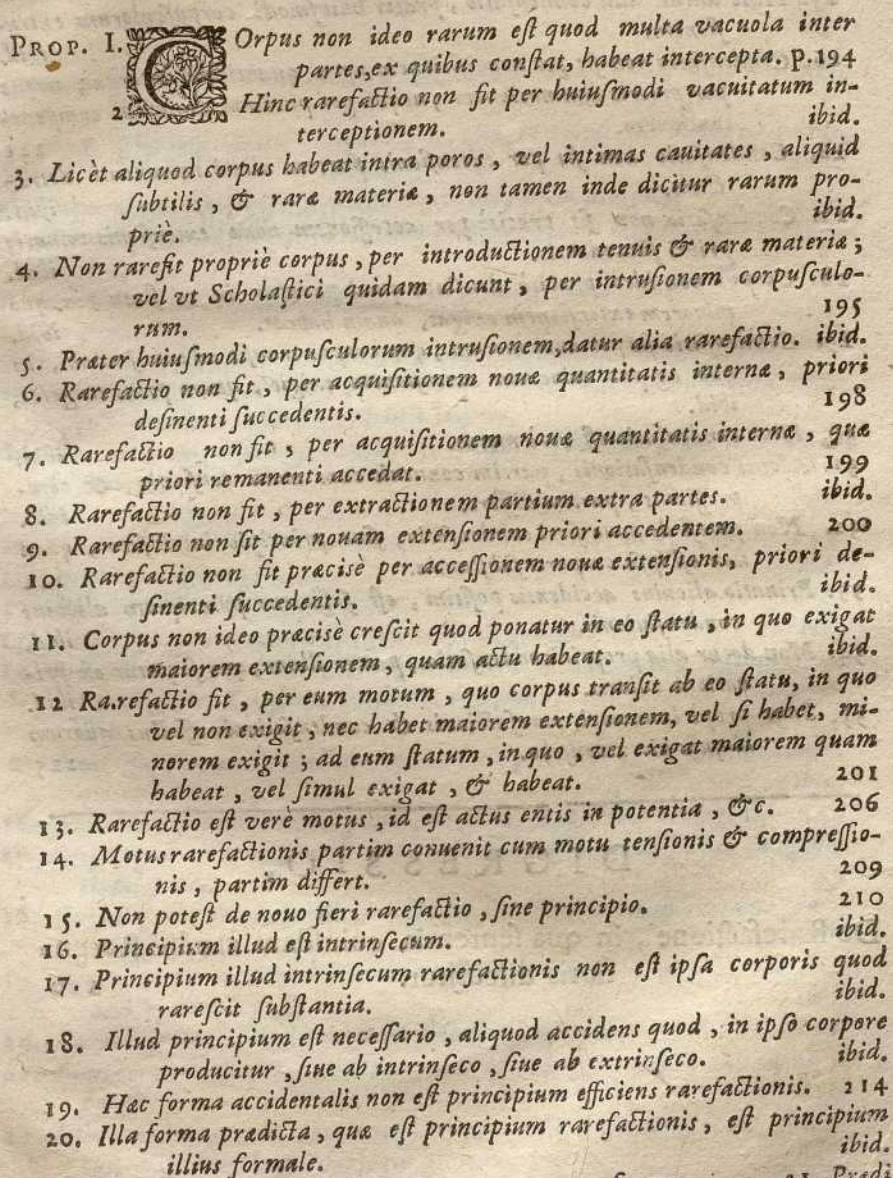 PROP. I. COrpus non ideo rarum eſt quod multa vacuola inter
partes, ex quibus conſtat, habeat intercepta. p.194
2 Hinc rarefactio non fit per huiuſmodi vacuitatum in-
terceptionem. ibid.
3. Licèt aliquod corpus habeat intra poros, vel intimas cauitates, aliquid
ſubtilis, & raræ materiæ, non tamen inde dicitur rarum pro-
priè. ibid.
4. Non rarefit propriè corpus, per introductionem tenuis & raræ materiæ;
vel vt Scholaſtici quidam dicunt, per intruſionem corpuſculo-
rum. 195
5. Præter huiuſmodi corpuſculorum intruſionem, datur alia rarefactio. ibid.
6. Rarefactio non fit, per acquiſitionem nouæ quantitatis internæ, priori
deſinenti ſuccedentis. 198
7. Rarefactio non fit, per acquiſitionem nouæ quantitatis internæ, quæ
priori remanenti accedat. 199
8. Rarefactio non fit, per extractionem partium extra partes. ibid.
9. Rarefactio non fit per nouam extenſionem priori accedentem. 200
10. Rarefactio non fit præcisè per acceſſionem nouæ extenſionis, priori de-
ſinenti ſuccedentis. ibid.
11. Corpus non ideo præcisè creſcit quod ponatur in eo ſtatu, in quo exigat
maiorem extenſionem, quam actu habeat. ibid.
12 Ra.refactio fit, per eum motum, quo corpus tranſit ab eo ſtatu, in quo
vel non exigit, nec habet maiorem extenſionem, vel ſi habet, mi-
norem exigit; ad eum ſtatum, in quo, vel exigat maiorem quam
habeat, vel ſimul exigat, & habeat. 201
13. Rarefactio eſt verè motus, id eſt actus entis in potentia, &c. 206
14. Motus rarefactionis partim conuenit cum motu tenſionis & compreſſio-
nis, partim differt. 209
15. Non poteſt de nouo fieri rarefactio, ſine principio. 210
16. Principium illud eſt intrinſecum. ibid.
17. Principium illud intrinſecum rarefactionis non eſt ipſa corporis quod
rareſcit ſubſtantia. ibid.
18. Illud principium eſt neceſſario, aliquod accidens quod, in ipſo corpore
producitur, ſiue ab intrinſeco, ſiue ab extrinſeco. ibid.
19. Hæc forma accidentalis non eſt principium efficiens rarefactionis. 214
20. Illa forma prædicta, quæ eſt principium rarefactionis, eſt principium
illius formale. ibid.
21. Prædi